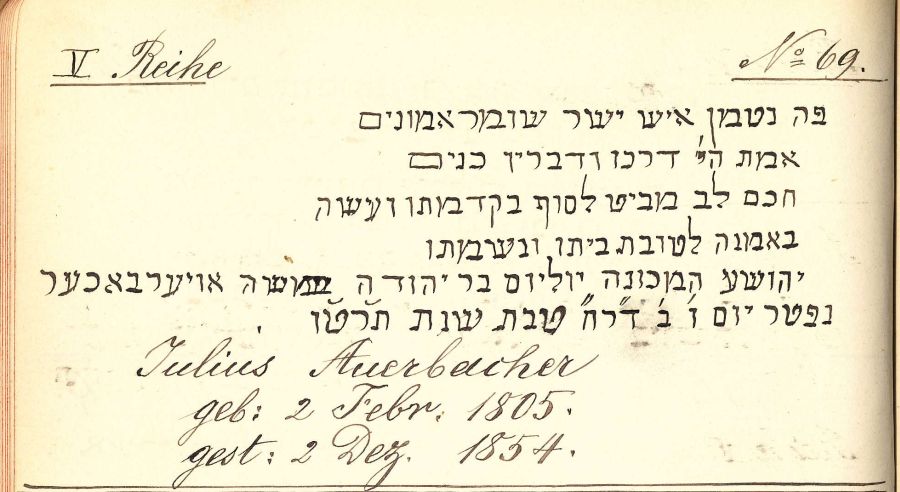 V Reihe
No 69.
פה נטמן איש ישר שומר אמונים
אמת הי' דרכו ודבריו כנים
חכם לב מביט לסוף בקדמתו ועשה
באמנה לטובת ביתו ונשמתו
יהושע המכונה יוליום בר יהודה משה אויערבאכער
נפטר יום ז' ב' דר"ח טבת שנת תרט"ו
Julius Auerbacher
geb: 2 Febr. 1805.
gest: 2 Dez. 1854.